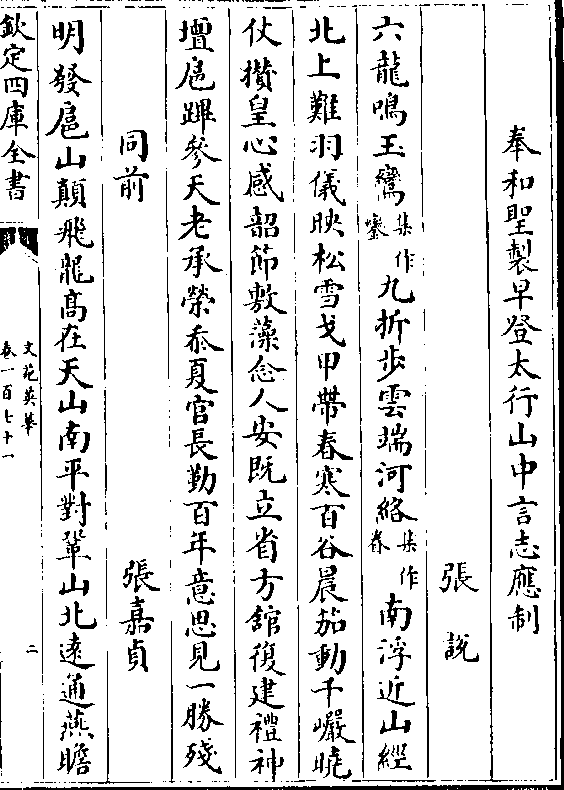 奉和聖製早登太行山中言志應制
張說
六龍鳴玉鸞集作鑾九折步雲端河絡集作眷南浮近山經
北上難羽儀映松雪戈甲帶春寒百谷晨笳動千巖曉
仗攢皇心感韶節敷藻念人安既立省方館復建禮神
壇扈蹕參天老承榮忝夏官長勤百年意思見一勝殘
同前
張嘉貞
明發扈山巔飛龍高在天山南平對鞏山北遠通燕瞻
欽定四庫全書
文苑英華
卷一百七十一
二